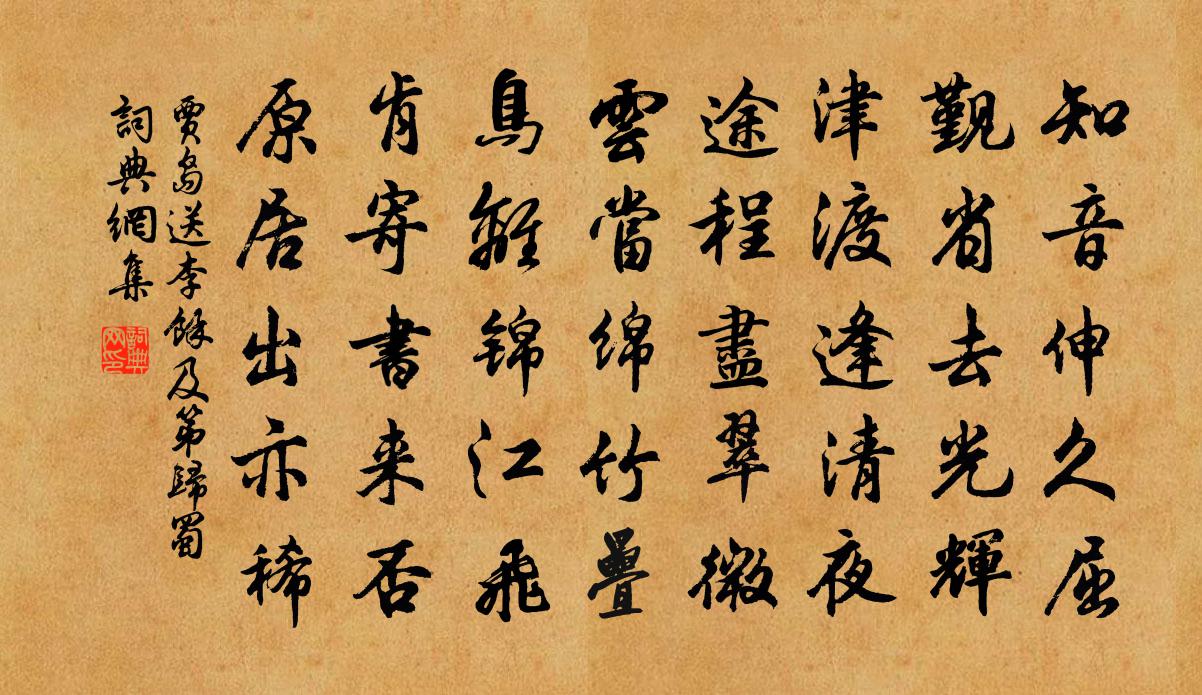 知音伸久屈
覲省去光輝
津渡逢清夜
途程盡翠微
雲當綿竹疊
鳥離錦江飛
肯寄書来否
原居出亦稀
賈島送李餘及第歸蜀
詞典網集
詞典网印